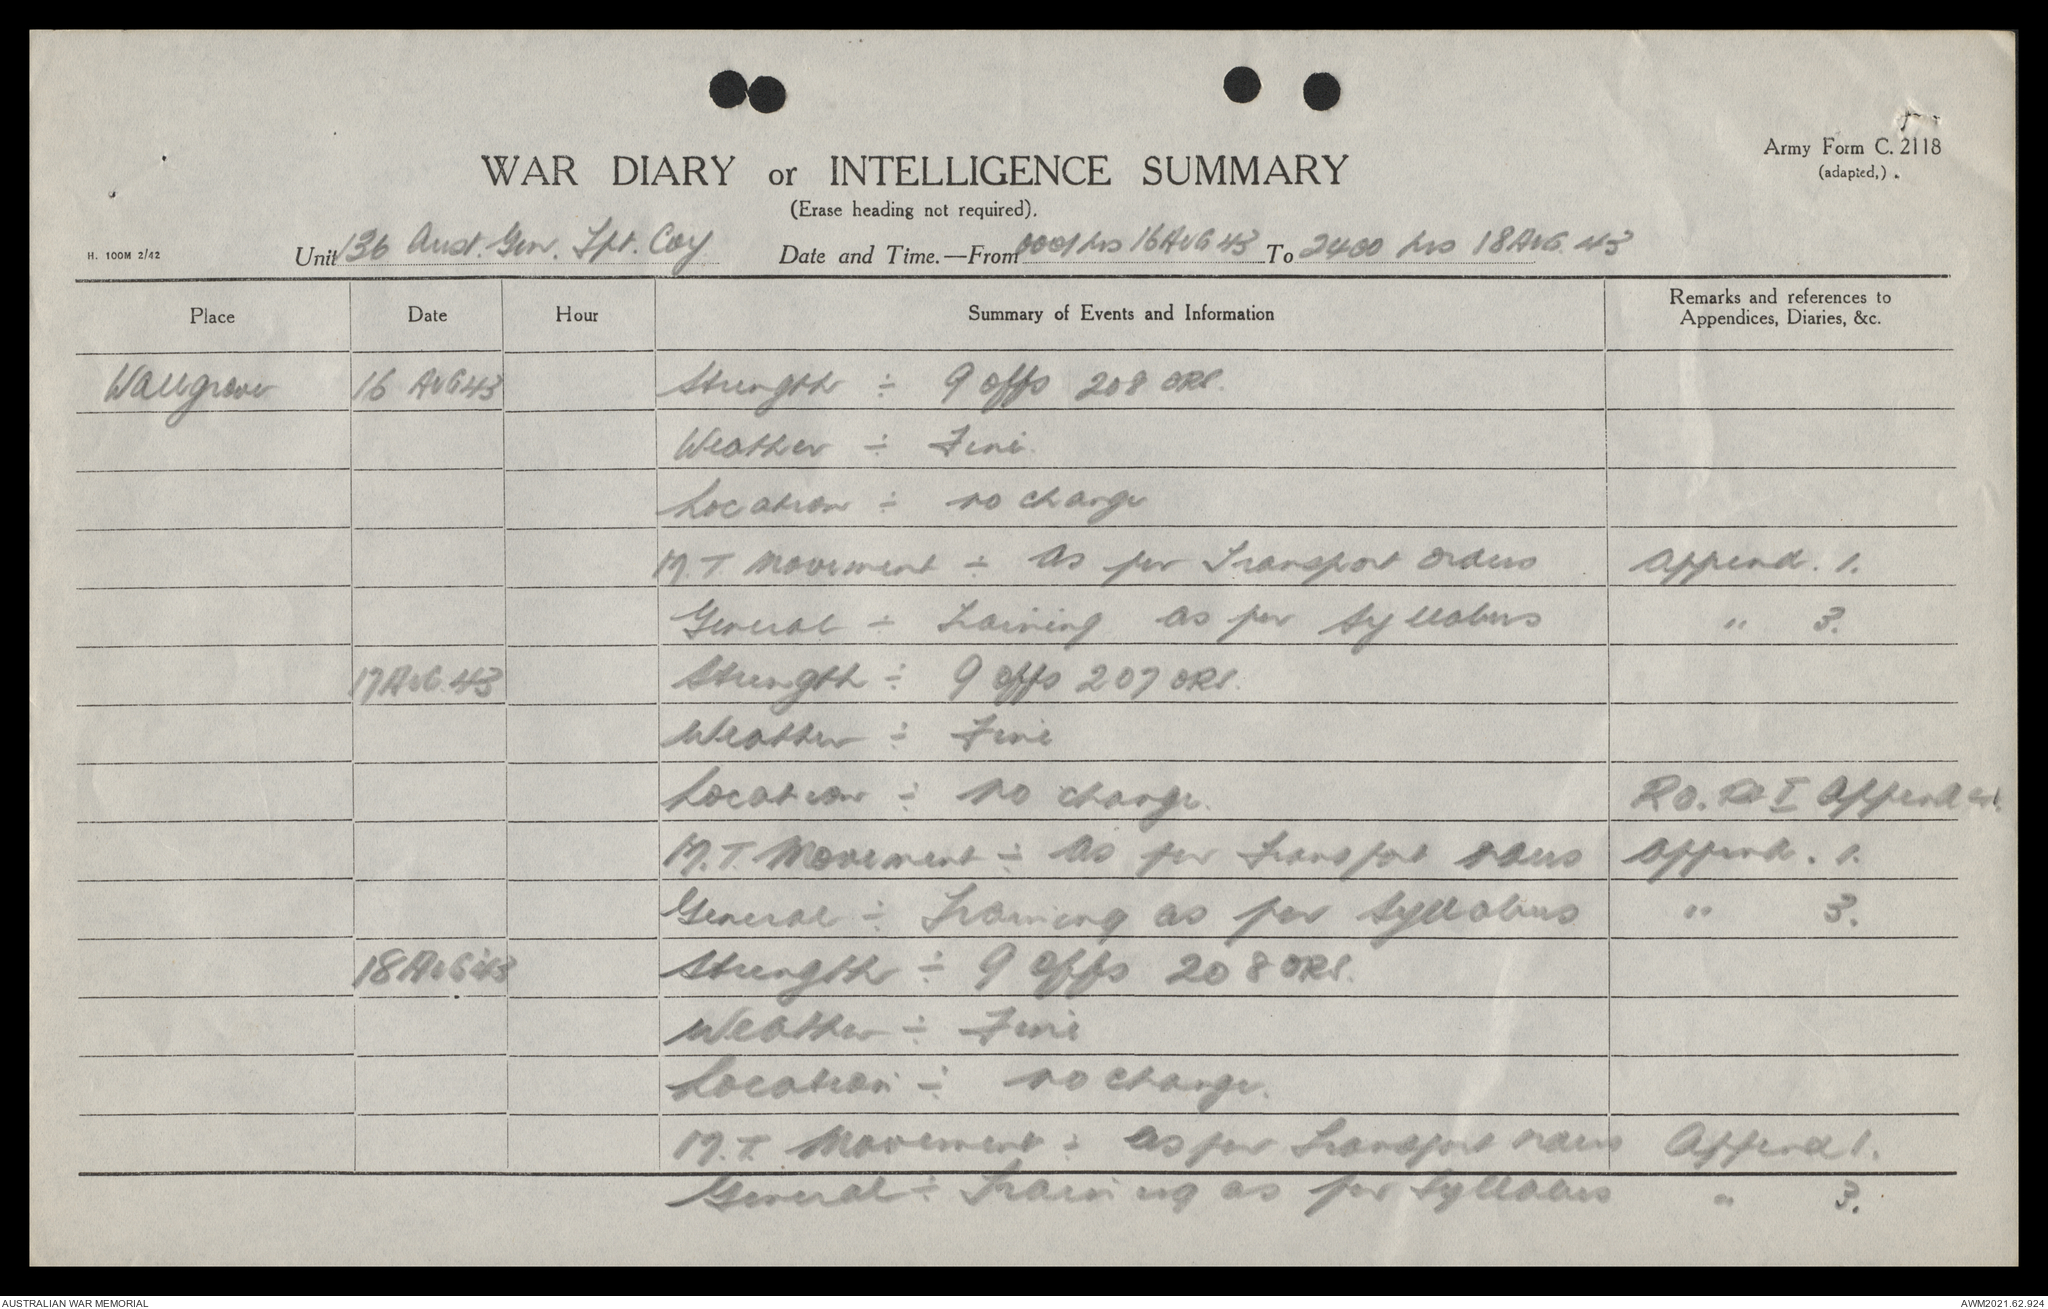 Army Form C. 2118
(adapted,).
WAR DIARY or INTELLIGENCE SUMMARY
(Erase heading not required).
H. 100M 2/42 Unit 136 Aust. Gen. Tpt. Coy Date and Time.—From 0001 hrs 16 AUG 43 To 2400 hrs 18 AUG. 43
Place Date Hour Summary of Events and Information Remarks and references to Appendices, Diaries, &c.
Wallgrove 16 AUG 43 Strength ÷ 9 offs 208 ORS.
Weather ÷ Fine.
Location ÷ no change
M.T. Movement ÷ As per Transport orders Append. 1.
General ÷ Training as per Syllabus " 3.
17 AUG. 43 Strength ÷ 9 offs 207 ORS.
Weather ÷ Fine
Location ÷ No change. Ro. I Append
M.T. Movement ÷ As per Transport orders Append. 1.
General ÷ Training as per Syllabus " 3.
18 AUG 43 Strength ÷ 9 offs 208 ORS.
Weather ÷ Fine
Location ÷ no change.
M.T. Movement ÷ As per Transport orders Append 1.
General ÷ Training as per Syllabus " 3.
AUSTRALIAN WAR MEMORIAL AWM2021.62.924